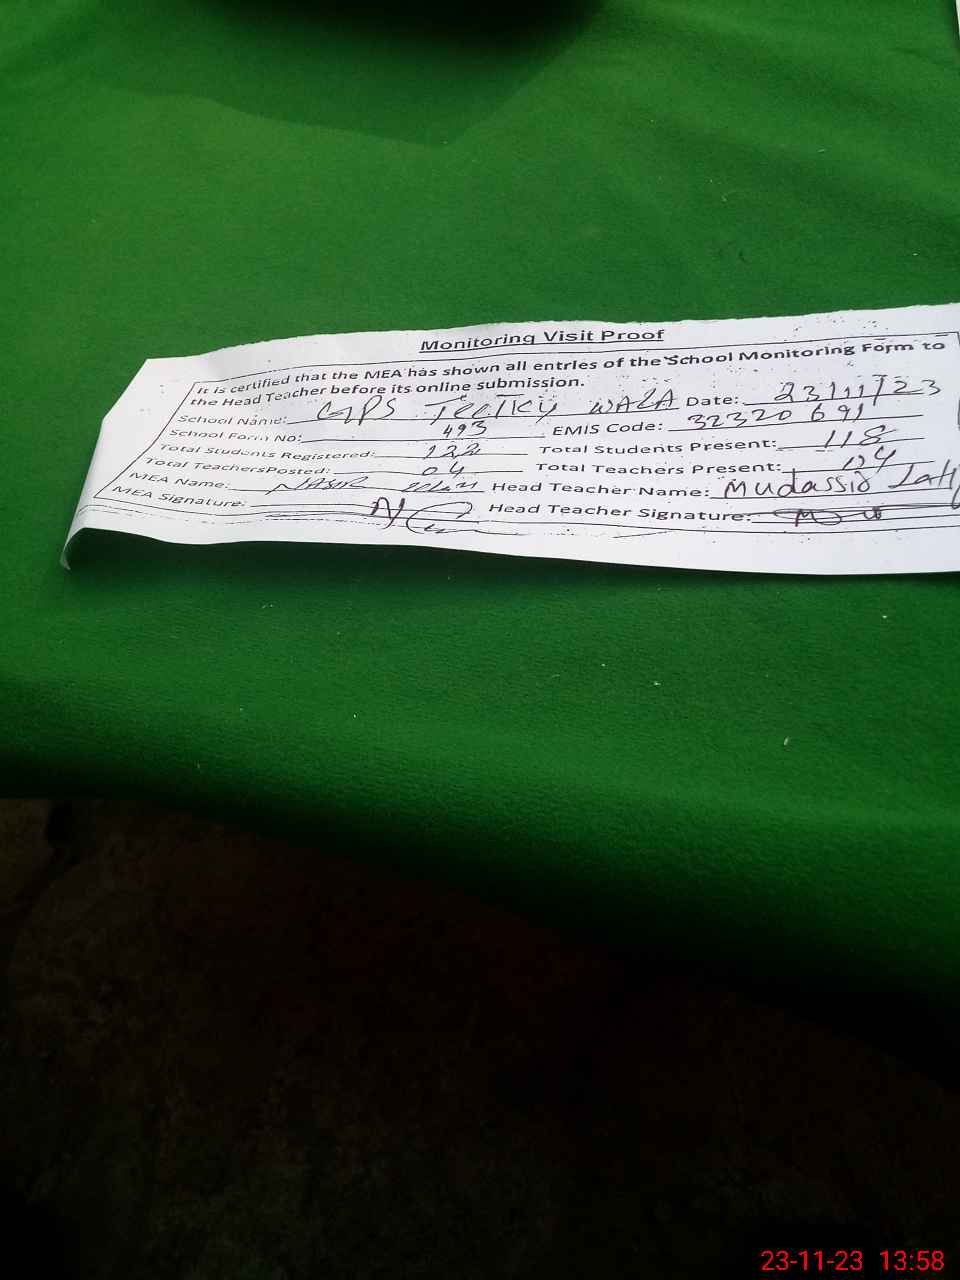 Monitoring Visit Proof
It is certified that the MEA has shown all entries of the School Monitoring Form to
the Head Teacher before its online submission.
School Name: GPS WALA Date: 23/11/23
School Form No: 493 EMIS Code: 32320691
Total Students Registered: 122 Total Students Present: 118
Total TeachersPosted: 04 Total Teachers Present: 04
MEA Name: NASIR Head Teacher Name: Mudassir
MEA Signature: Head Teacher Signature:
23-11-23 13:58